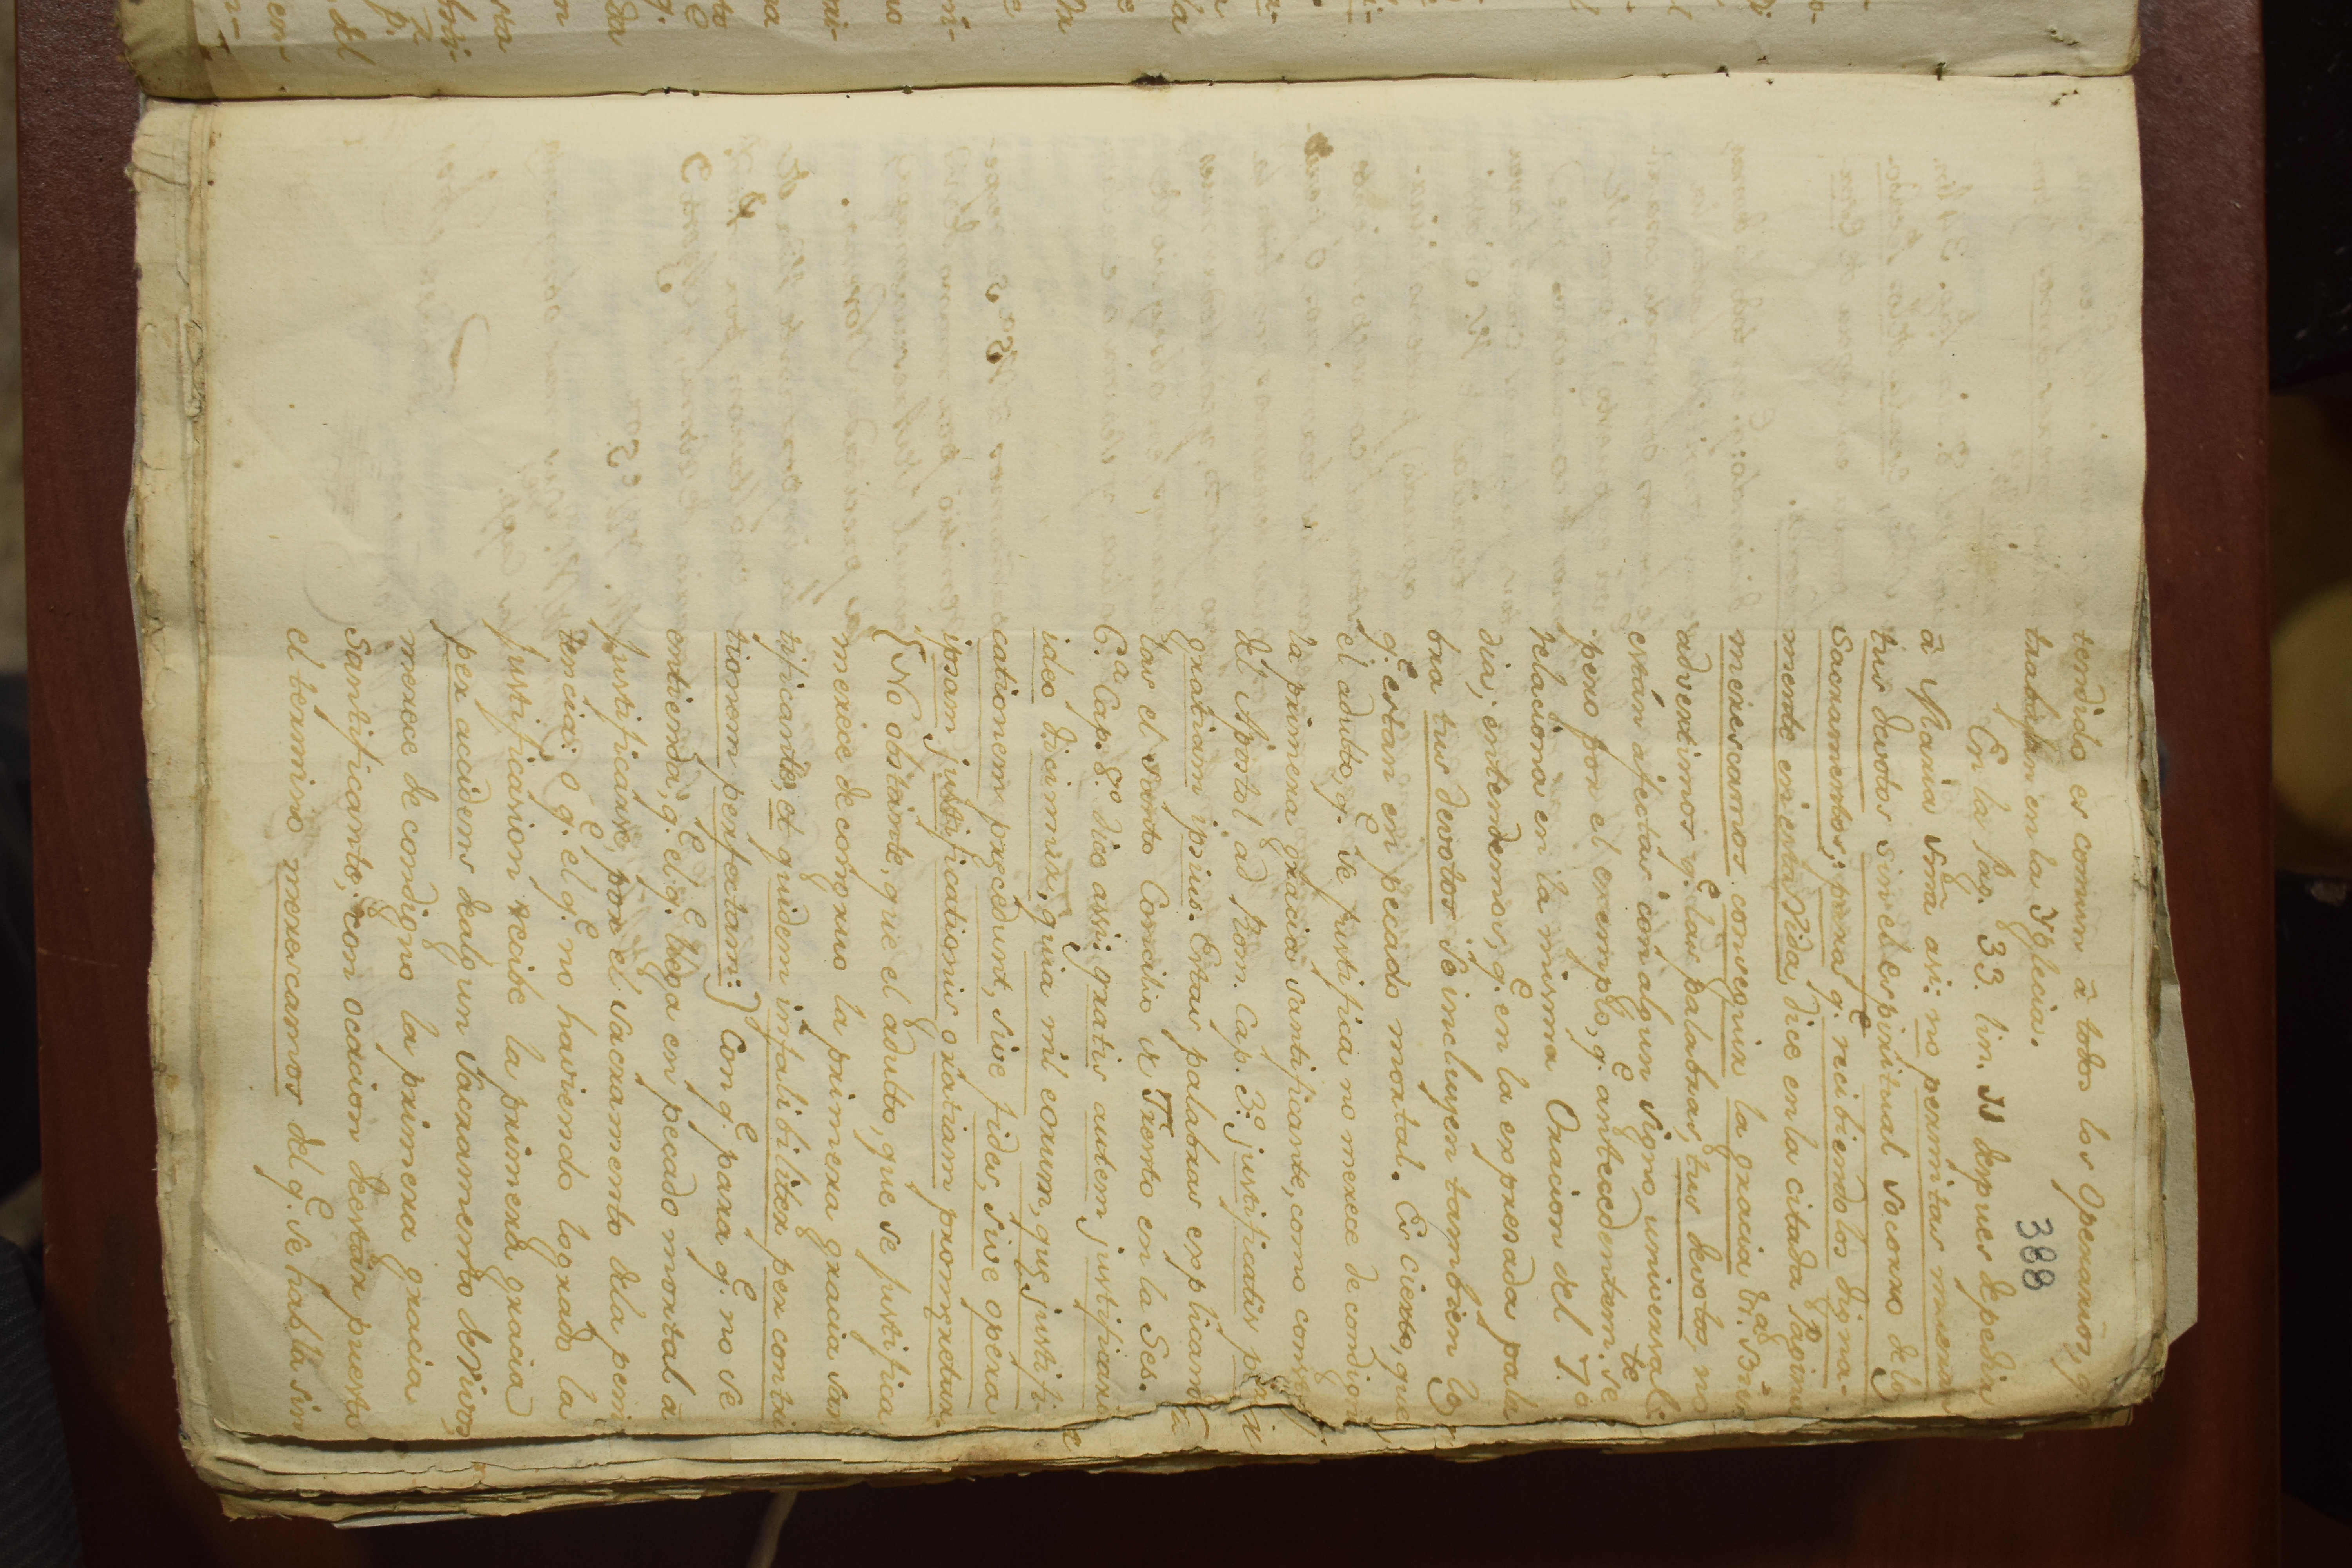 388
tendido es comun â todos los Operarios, q.
trabajan en la Yglecia.
En la Pag. 33. lin. 11 despues de pedir
â Maria Srã asi: no permitas mueran
tus devotos sin el espiritual socorro de los
Sacramentos; para q.e recibiendolos digna-
mente en esta Vida, dice en la citada Pagina
merescamos conseguir la gracia
advertimos q.e las palabras, tus devotos, no
están afectas con algun signo universal:
pero por el exemplo, q.e antecedentem.te se
relaciona en la misma Oracion del 7.º
dia, entendemos, q.e en la expresada pala
bra tus devotos se incluyen tambien los
q.e estan en pecado mortal. Es cierto, que
el adulto, q.e se justifica, no merece de condign
la primera gracia santificante, como
del Apostol ad Rom. Cap. 3.º justificatis
gratiam ipsius. Estas palabras explican
las el santo Concilio de Trento en la Ses.
6.a Cap. 8.º dice assi: gratis autem justificari
ideo dicimur, quia nil eorum, que justifi
cationem precedunt, sive fides, sive opera
ipsam justificationis gratiam promeretur.
{ No obstante, que el adulto, que se justifica
merece de congruo la primera gracia san
tificante, et quidem infalibiliter per contri
tionem perfectam:) Con q.e para q.e no se
entienda, q.e el q.e llega en pecado mortal â
justificarse, por el Sacramento dela peni
tencia: ô q.e el q.e no haviendo logrado la
justificasion recibe la primera gracia
per accidens de algun Sacramento de vivos
merece de condigno la primera gracia
Santificante; con ocacion de estar puesto
el termino merescamos del q.e se habla sin